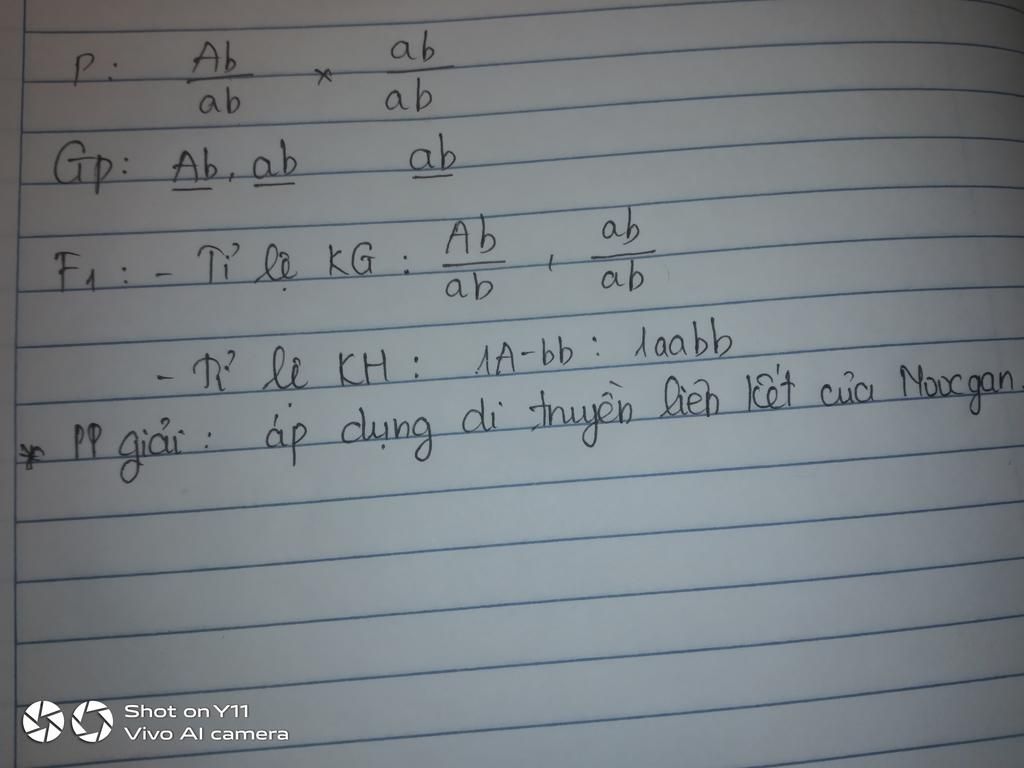 P: Ab/ab × ab/ab
Gp: Ab, ab ab
F1: - Tỉ lệ KG: Ab/ab , ab/ab
- Tỉ lê KH: 1A-bb: 1aabb
* PP giải: áp dụng di truyền liên kết của Moocgan.
Shot on Y11
Vivo AI camera